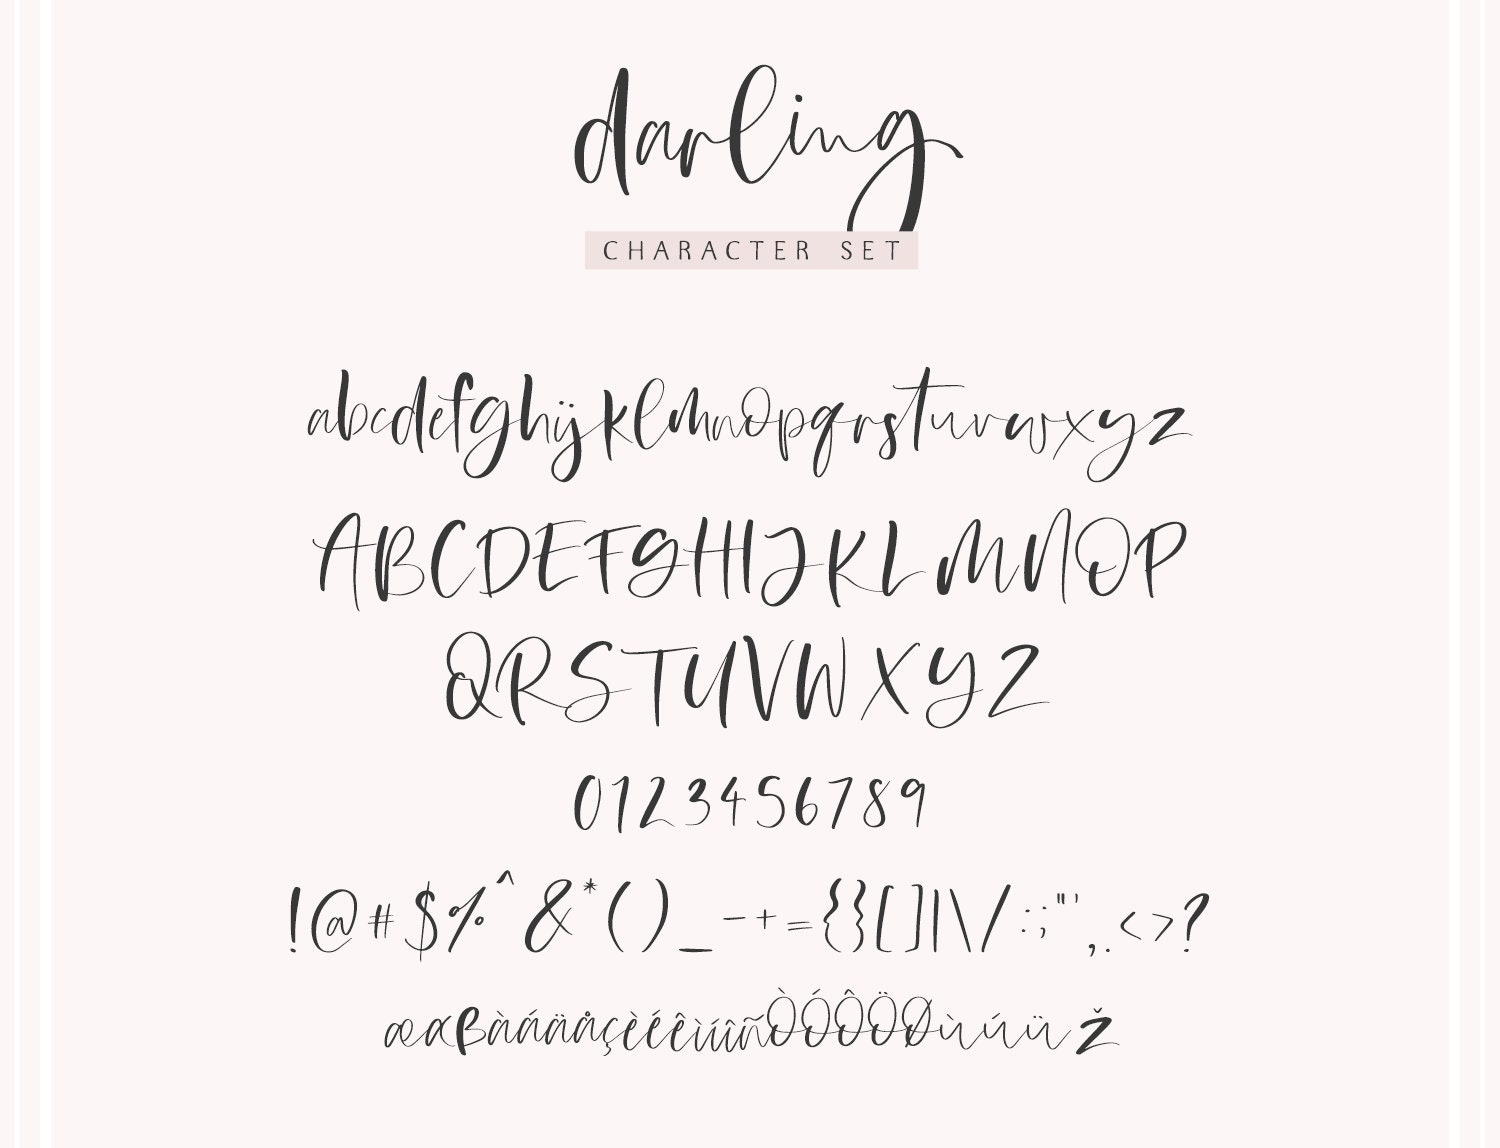 darling
CHARACTER SET
abcdefghijklmnopqrstuvwxyz
ABCDEFGHIJKLMNOP
QRSTUVWXYZ
0123456789
!@#$%^&*()_-+={}[]|\/:;"',.<>?
æαβàáäåçèéêìíîñÒÓÔÖØùúüž